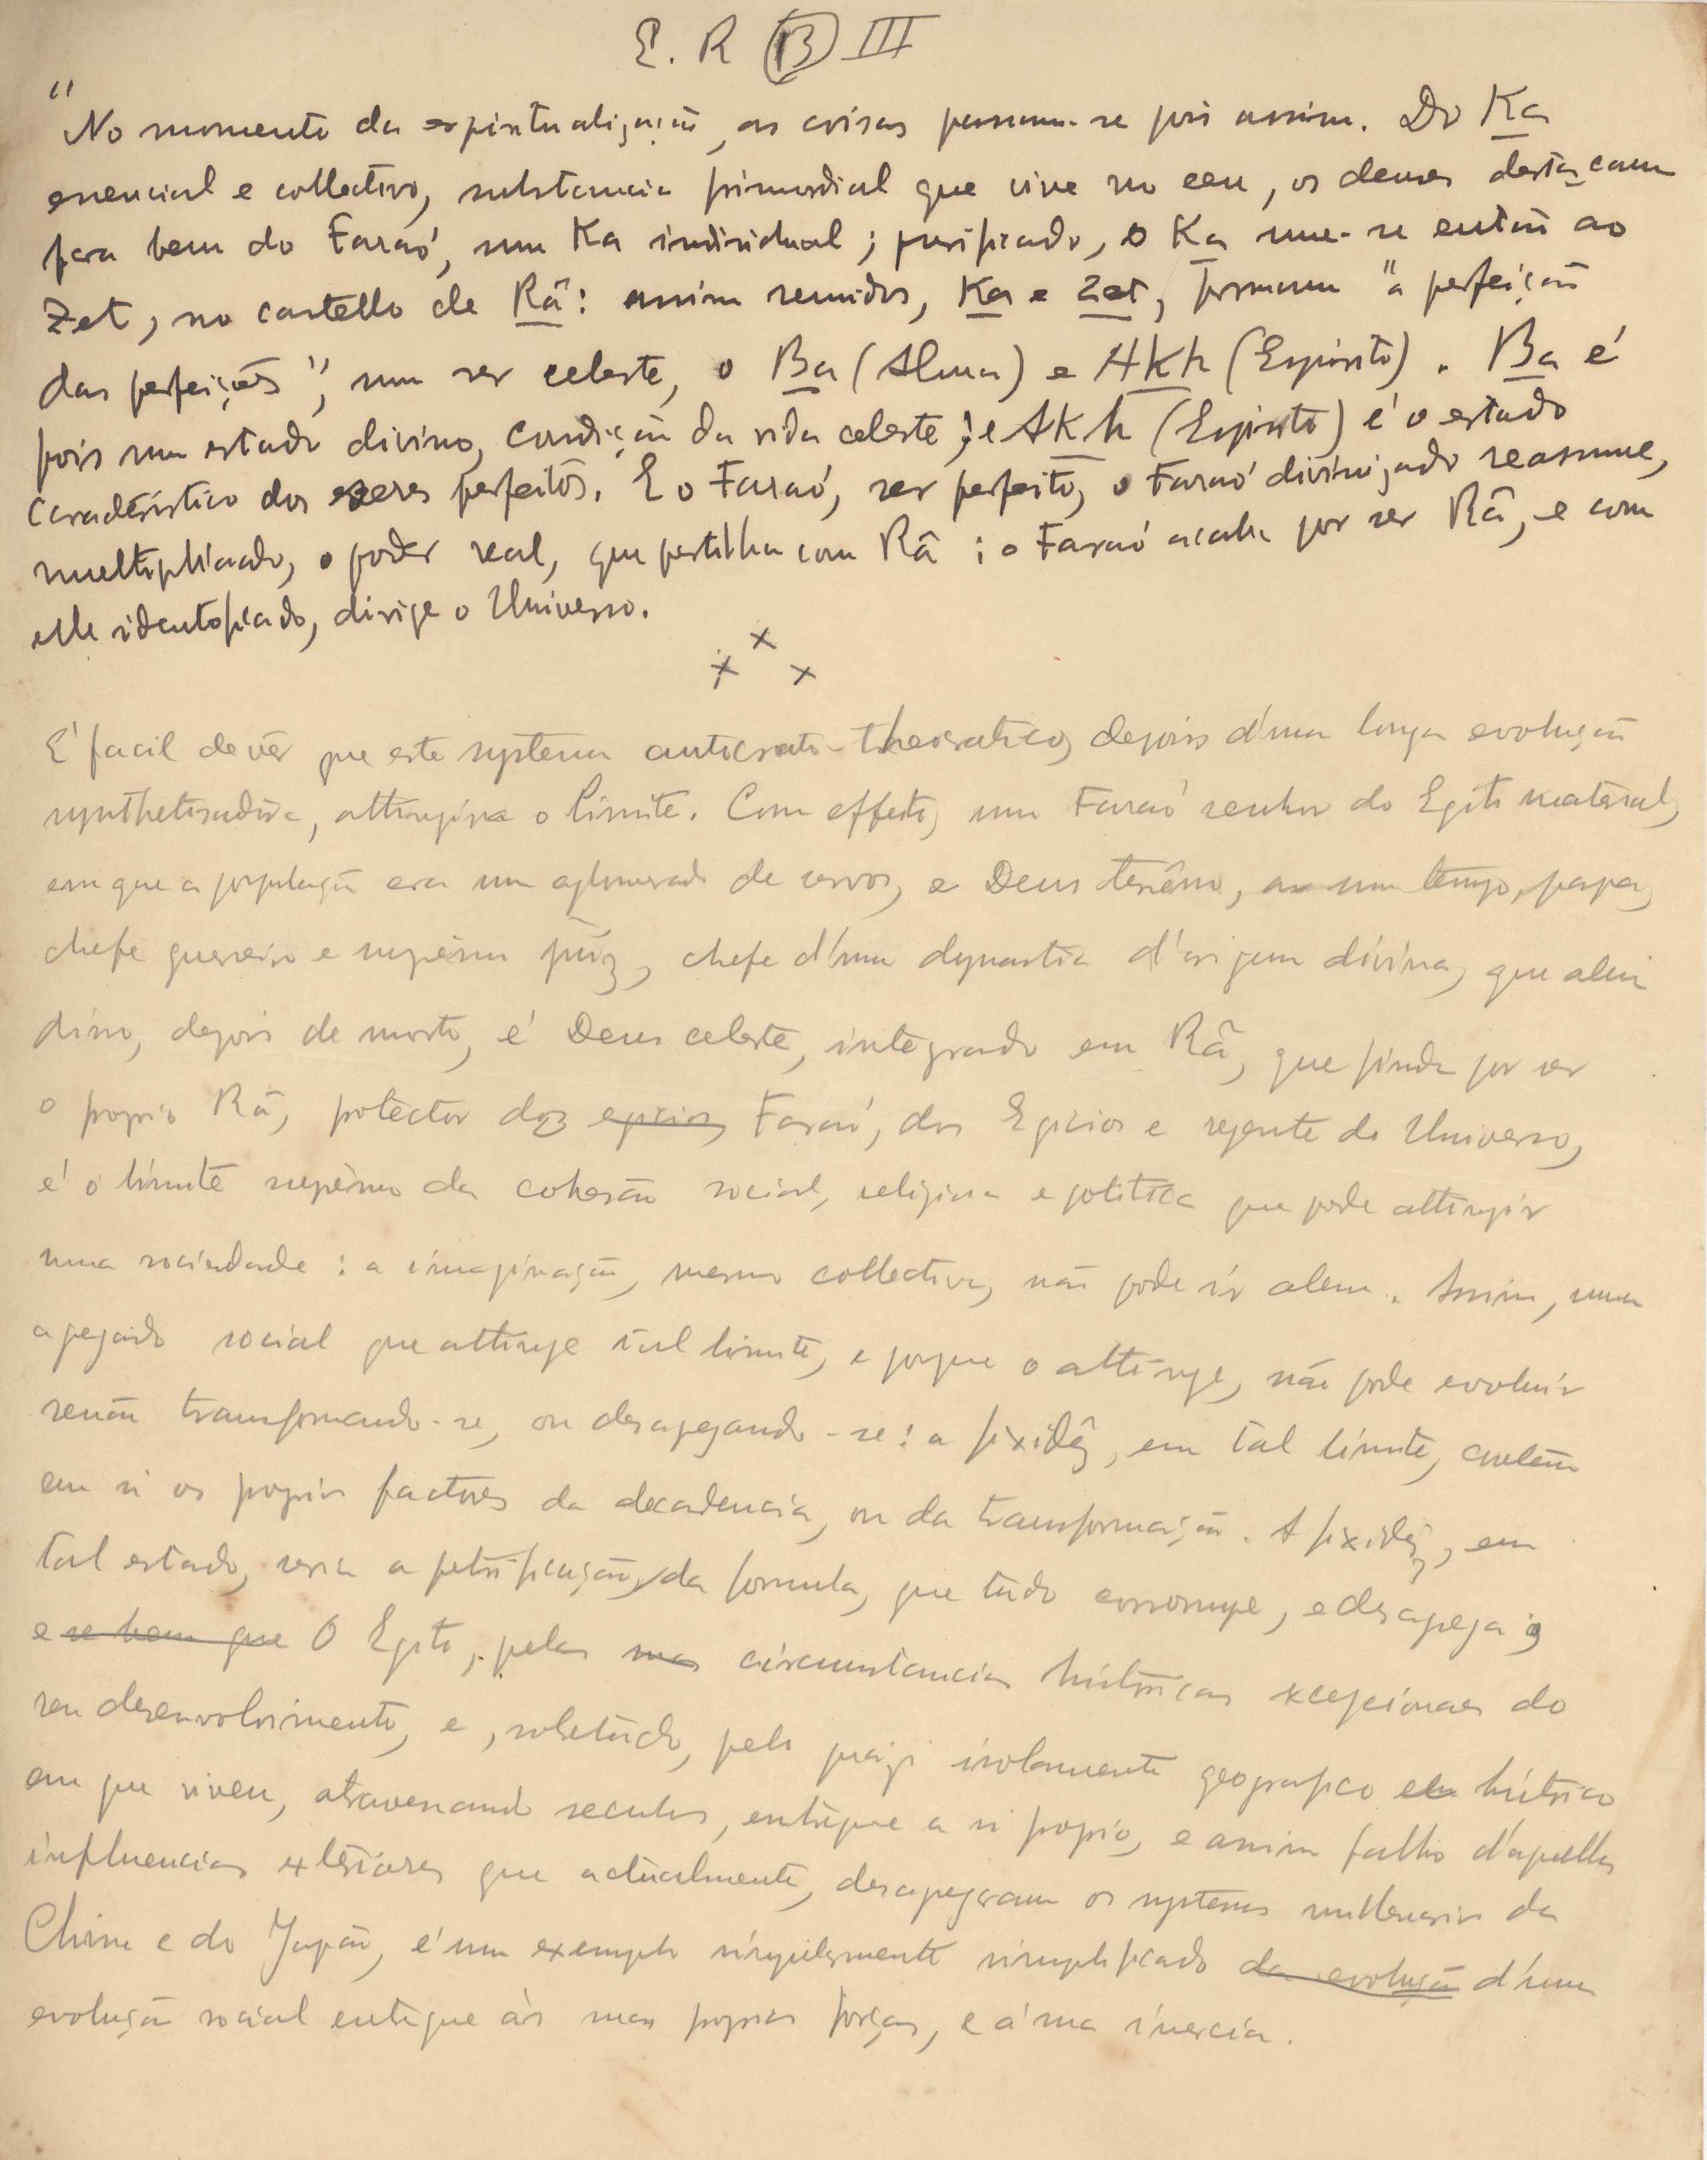 E. R (13) III
"No momento da espiritualização, as coisas passam-se pois assim. Do Ka
essencial e collectivo, substancia primordial que vive no ceu, os deuses destacam
para bem do Faraó, um Ka individual; purificado, o Ka une-se então ao
Zet, no castello de Râ: assim reunidos, Ka e Zet, formam "a perfeição
das perfeições", um ser celeste, o Ba (Alma) e AKh (Espirito). Ba é
pois um estado divino, condição da vida celeste; e AKh (Espirito) é o estado
caracteristico dos seres perfeitos. E o Faraó, ser perfeito, o Faraó divinizado reassume,
multiplicado, o poder real, que partilha com Râ: o Faraó acaba por ser Râ, e com
elle identificado, dirige o Universo.
x x x
É facil de vêr que este systema autocrato-theocratico, depois d'uma longa evolução
synthetisadora, attingira o limite. Com effeito, um Faraó senhor do Egito material,
em que a população era um aglomerado de servos, e Deus terreno, a um tempo, papa,
chefe guerreiro e supremo juiz, chefe d'uma dynastia d'origem divina, que alem
disso, depois de morto, é Deus celeste, integrado em Râ, que finda por ser
o proprio Râ, protector dos egicios Faraó, dos Egicios e regente do Universo,
é o limite supremo da cohesão social, religiosa e politica que pode attingir
uma sociedade: a imaginação, mesmo collectiva, não pode ir alem. Assim, um
apegado social que attinge tal limite, e porque o attinge, não pode evoluir
senão transformando-se, ou desapegando-se: a fixidêz, em tal limite, contem
em si os proprios factores da decadencia, ou da transformação. A fixidêz, em
tal estado, seria a petrificação da formula, que tudo corrompe, e desapega;
e se bem que O Egito, pelas suas circunstancias historicas excepcionaes do
seu desenvolvimento, e, sobetudo, pelo isolamento geografico e historico
em que viveu, atravessando seculos, entregue a si proprio, e assim falho d'aquellas
influencias exteriores que actualmente, desapegaram os systemas millenarios da
China e do Japão, é um exemplo singularmente simplificado da evolução d'uma
evolução social entregue ás suas proprias forças, e á sua inercia.